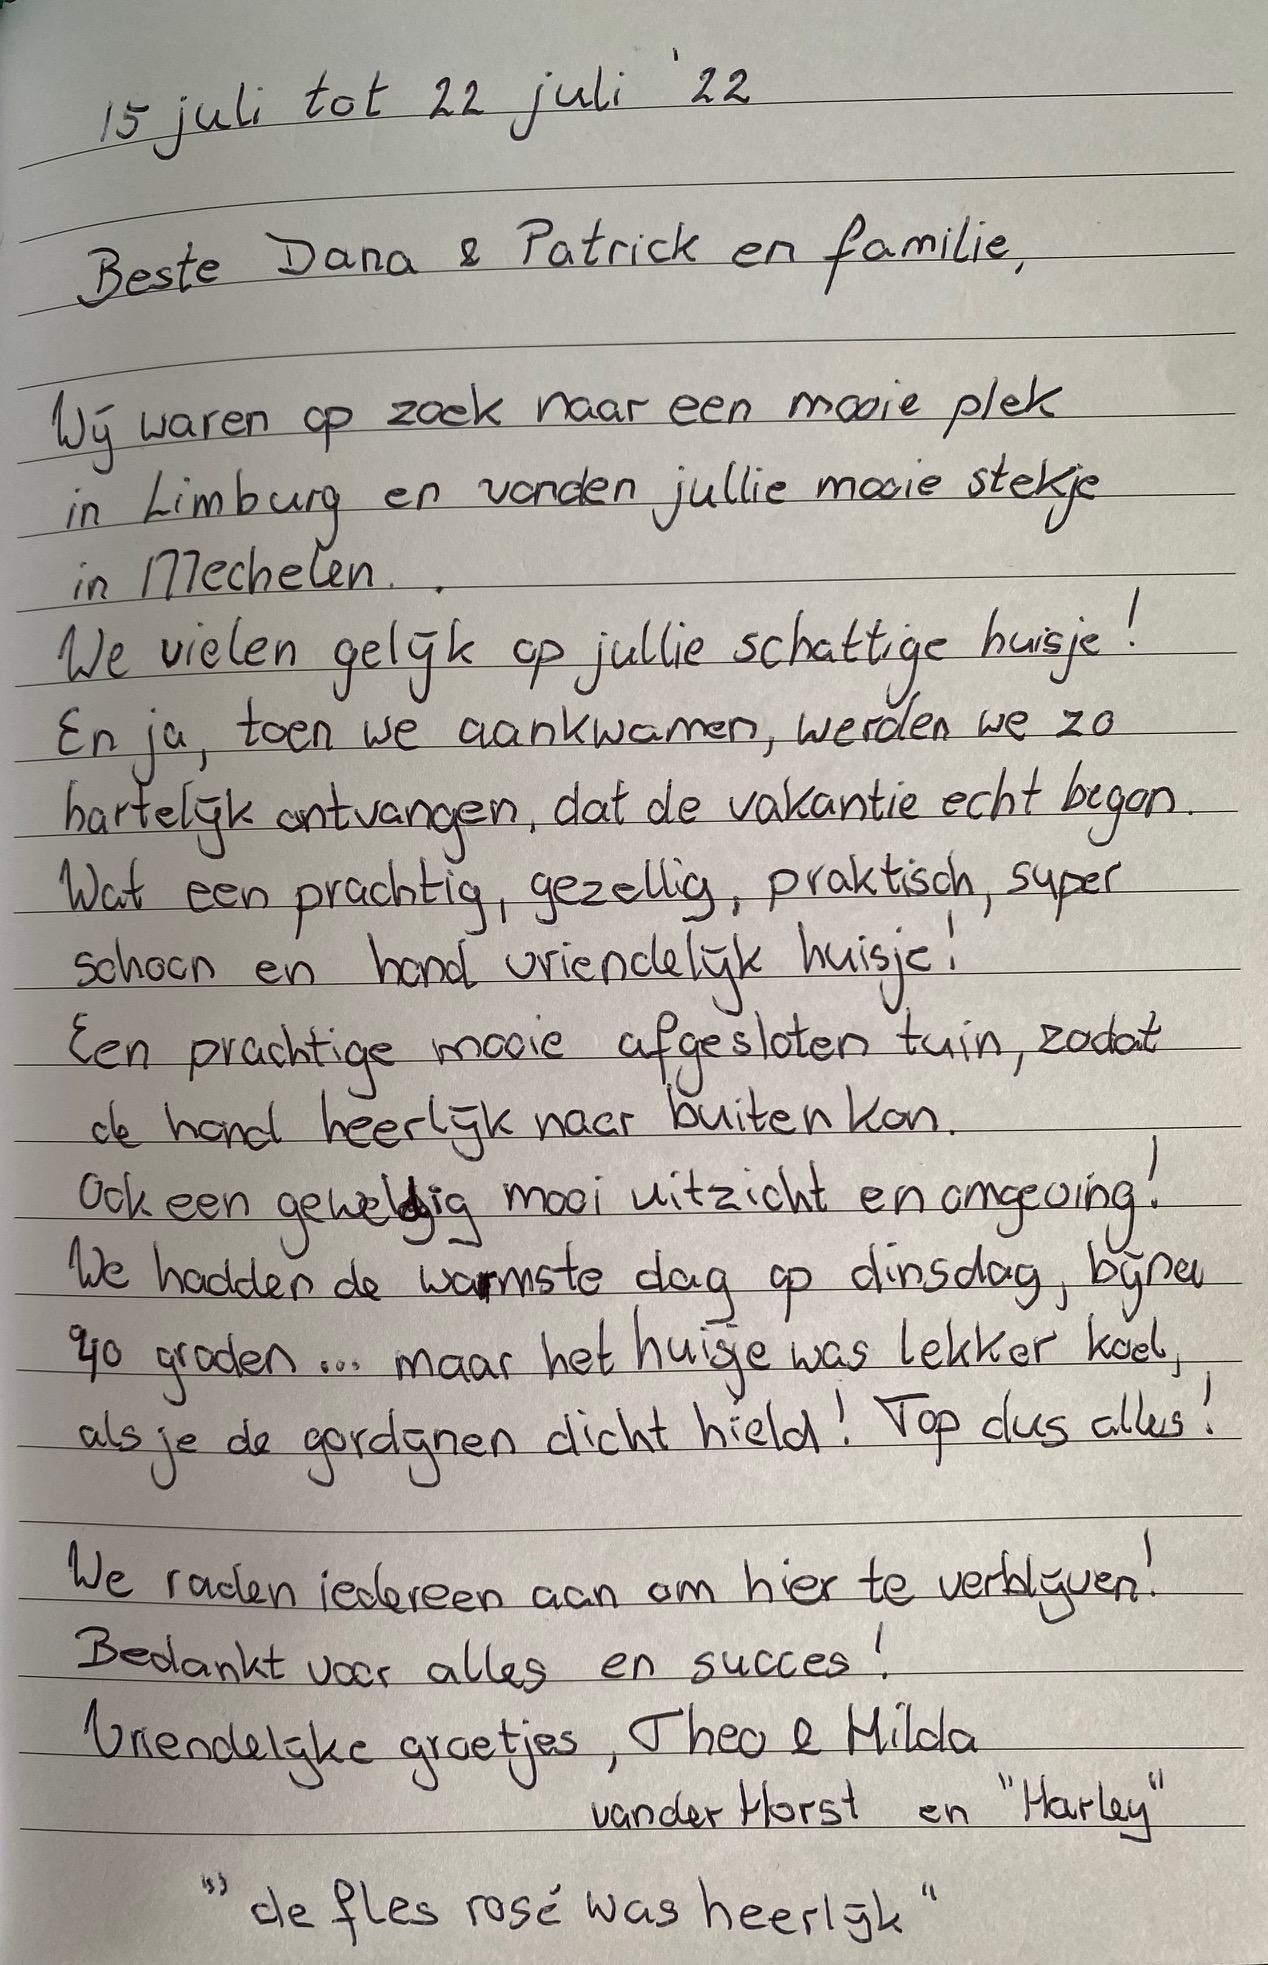 15 juli tot 22 juli '22
Beste Dana & Patrick en familie,
Wij waren op zoek naar een mooie plek
in Limburg en vonden jullie mooie stekje
in Mechelen.
We vielen gelijk op jullie schattige huisje!
En ja, toen we aankwamen, werden we zo
hartelijk ontvangen, dat de vakantie echt begon.
Wat een prachtig, gezellig, praktisch, super
schoon en hond vriendelijk huisje!
Een prachtige mooie afgesloten tuin, zodat
de hond heerlijk naar buiten kon.
Ook een geweldig mooi uitzicht en omgeving!
We hadden de warmste dag op dinsdag, bijna
40 graden... maar het huisje was lekker koel,
als je de gordijnen dicht hield! Top dus alles!
We raden iedereen aan om hier te verblijven!
Bedankt voor alles en succes!
Vriendelijke groetjes, Theo & Milda
van der Horst en "Harley"
"de fles rosé was heerlijk"